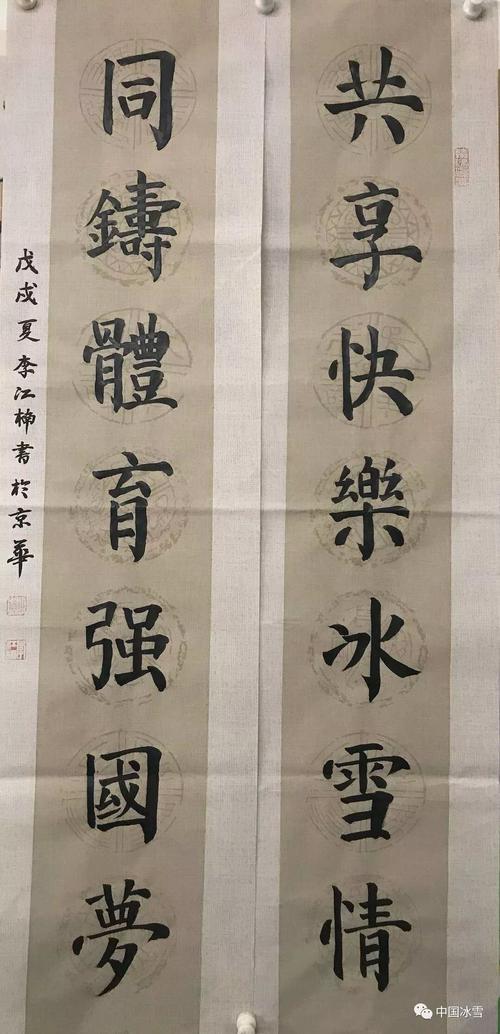 共享快樂冰雪情
同鑄體育强國夢
戊戌夏李江柳書於京華
中国冰雪